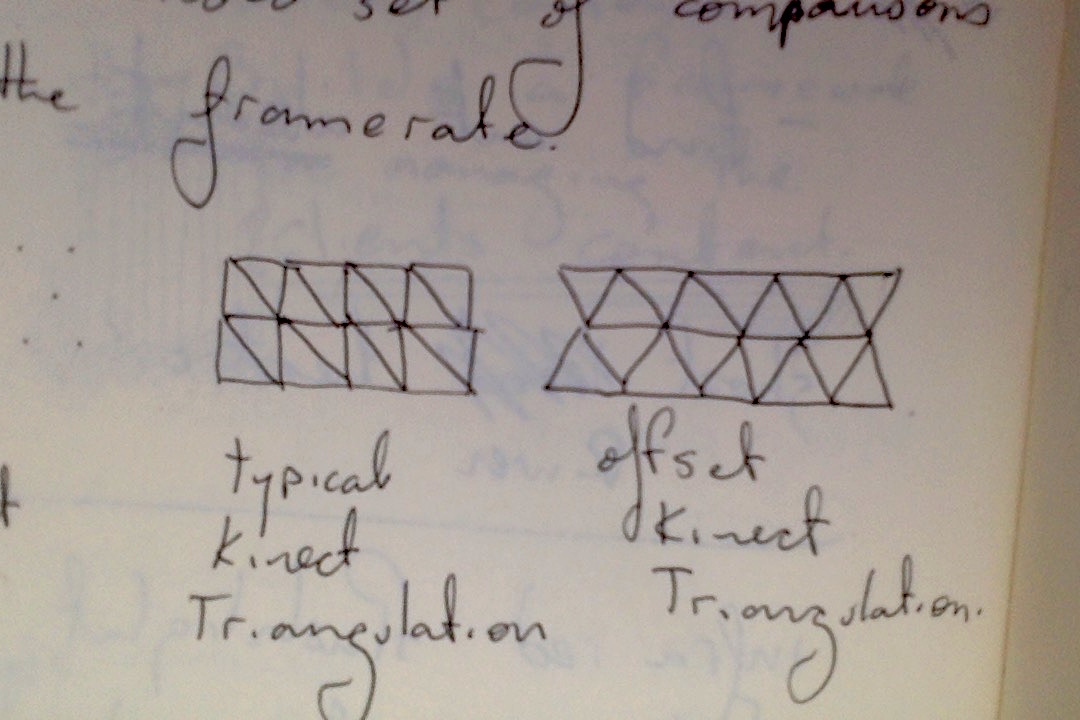 set of comparisons
the framerate.
typical
Kinect
Triangulation
offset
Kinect
Triangulation.